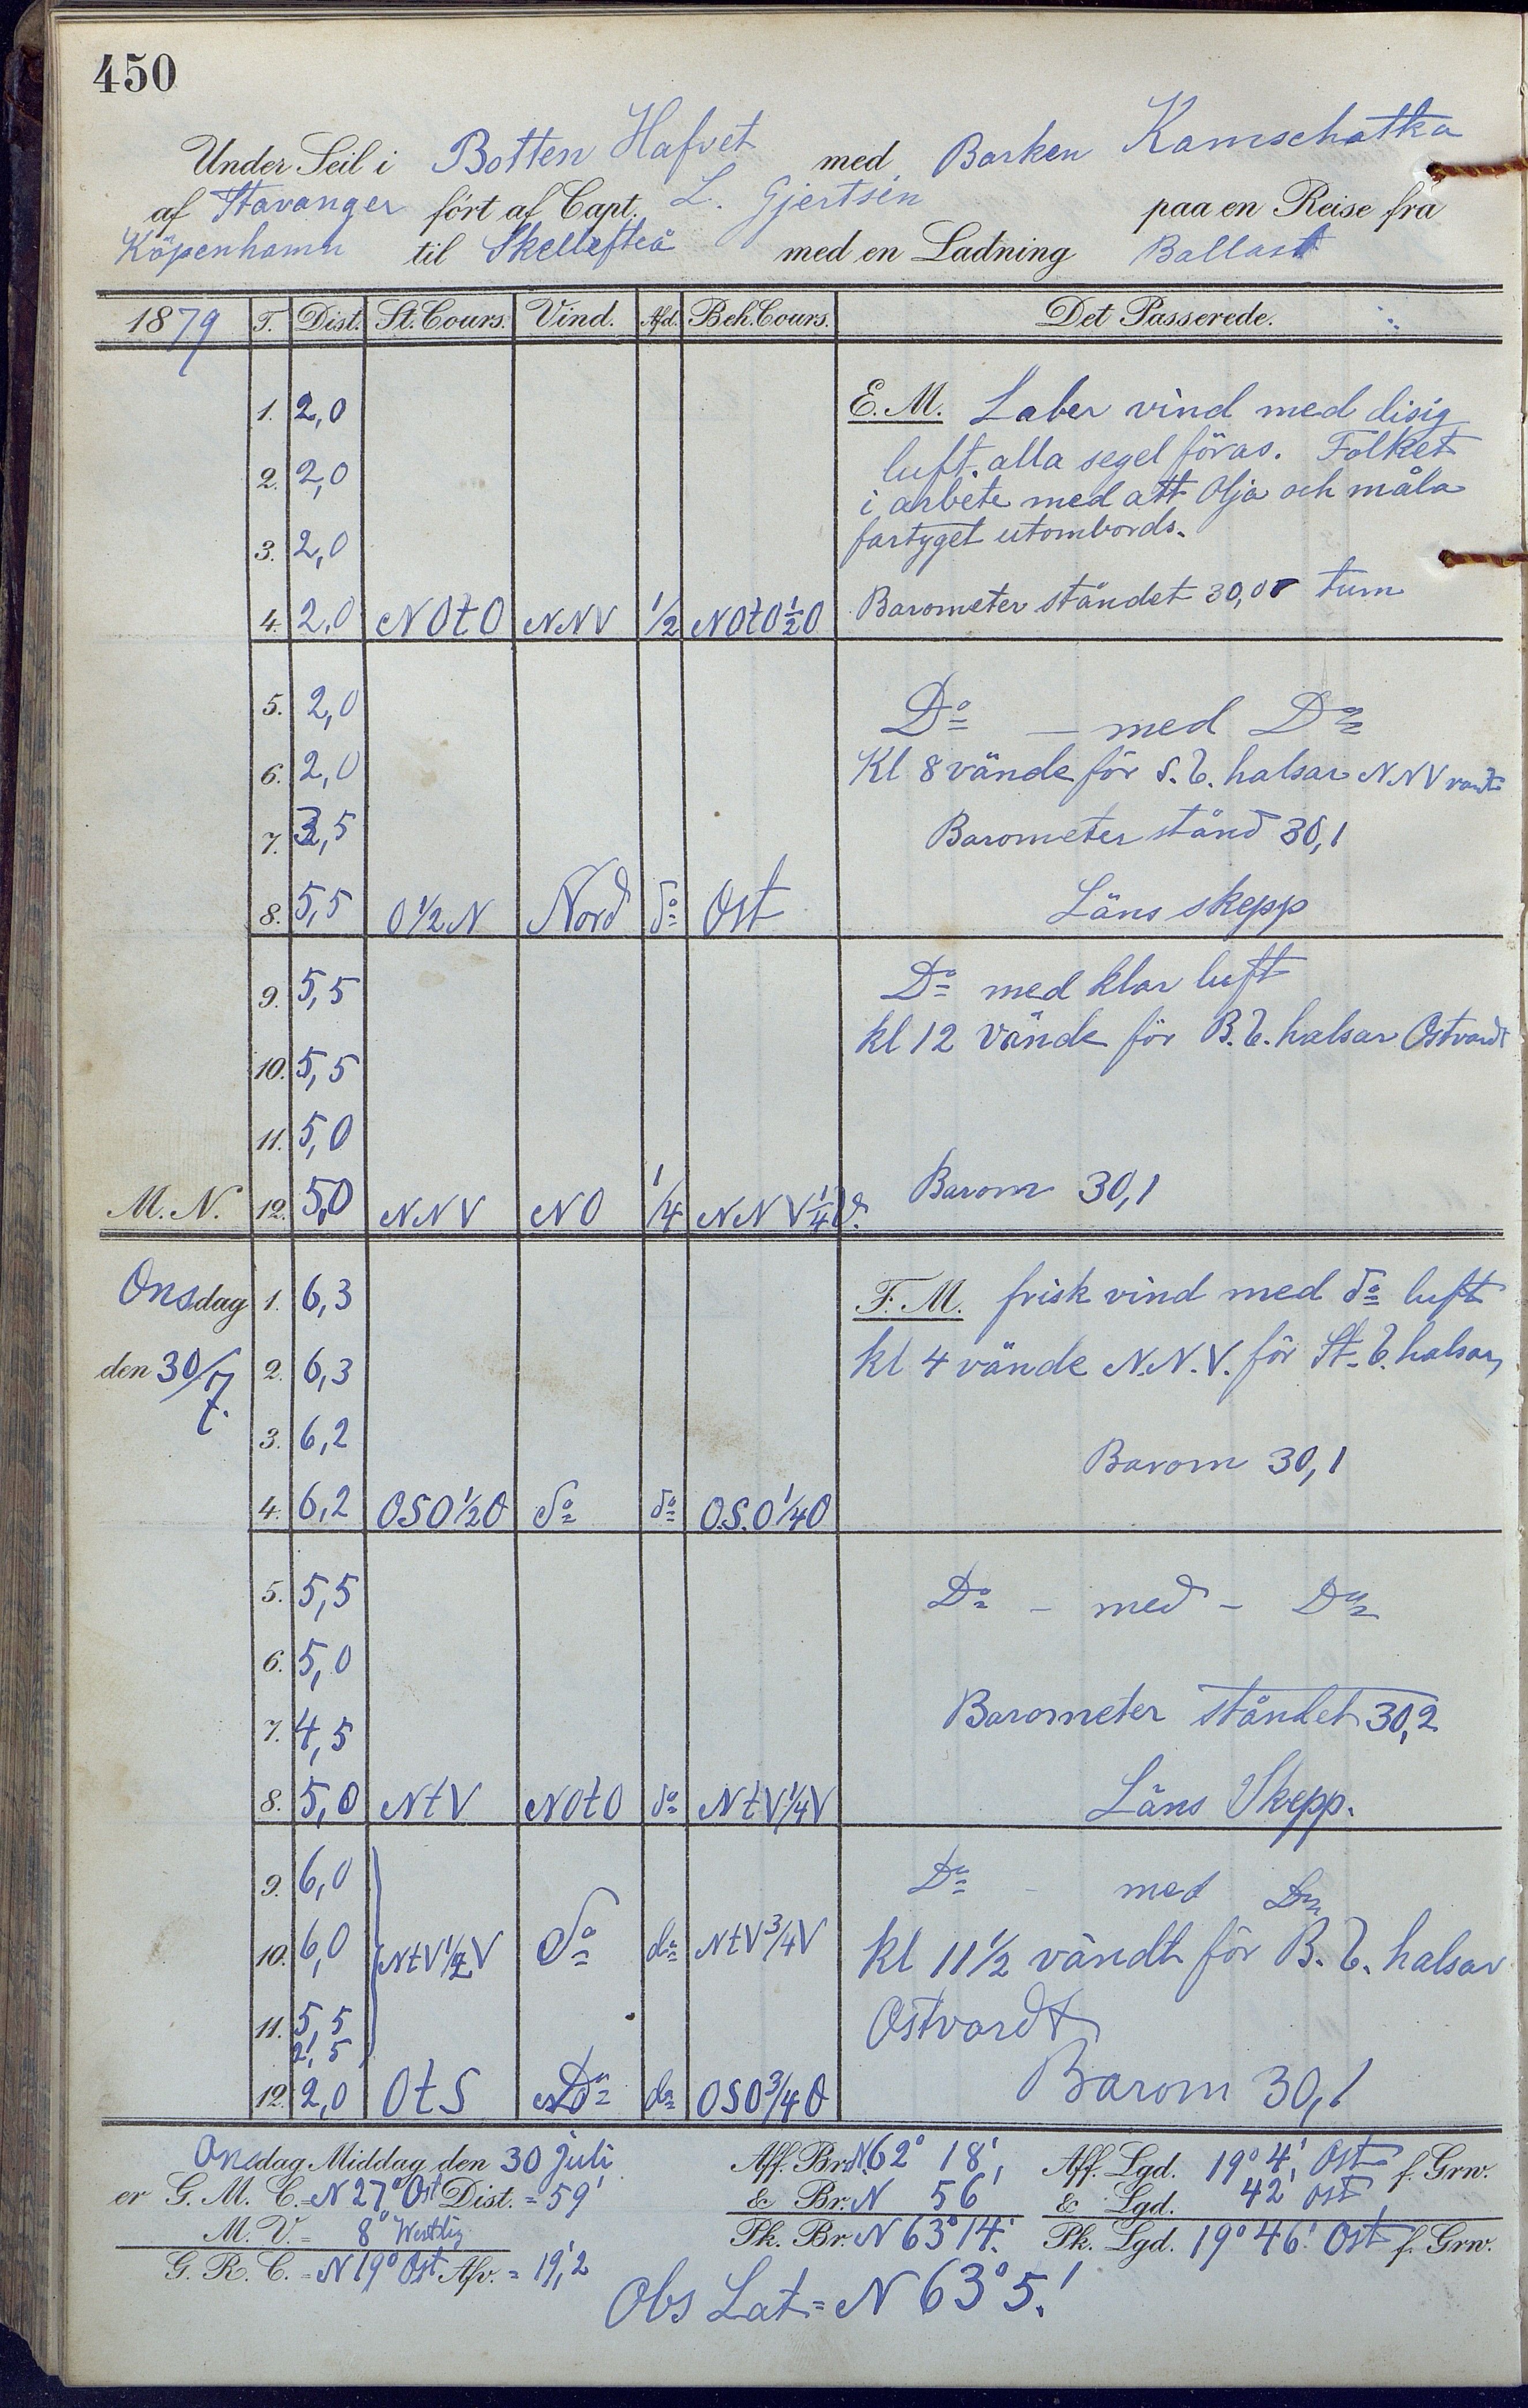 450
Under Seil i Botten Hafvet med Barken Kamschatka
af Stavanger fört af Capt. L. Gjertsen paa en Reise fra
Köpenhamn til Skellefteå med en Ladning Ballast
1879 T. Dist. St. Cours. Vind. Afd. Beh. Cours. Det Passerede.
1. 2,0 E. M. Laber vind med disig
luft. alla segel föras. Folket
2. 2,0 i arbete med att Olja och måla
3. 2,0 fartyget utombords.
4. 2,0 NOtO NNV 1/2 NOtO 1/2 O Barometer ståndet 30,0 tum
5. 2,0 Do — med Do
6. 2,0 Kl 8 vände för S. B. halsar NNV vardt
7. 3,5 Barometer stånd 30,1
8. 5,5 O 1/2 N Nord do Ost Läns skepp
9. 5,5 Do med klar luft
kl 12 vände för B. B. halsar Ostvardt
10. 5,5
11. 5,0
M. N. 12. 5,0 NNV NO 1/4 NNV 1/4 V. Barom 30,1
Onsdag 1. 6,3 F. M. frisk vind med do luft
den 30/7. 2. 6,3 kl 4 vände N.N.V. för St. B. halsar,
3. 6,2 Barom 30,1
4. 6,2 OSO 1/2 O do do O.S.O 1/4 O
5. 5,5 Do – med – Do
6. 5,0
7. 4,5 Barometer ståndet 30,2
8. 5,0 NtV NOtO do NtV 1/4 V Läns Skepp.
9. 6,0 Do – med Do
10. 6,0 NtV 1/2 V do do NtV 3/4 V kl 11 1/2 vändt för B. B. halsar
11. 5,5 Ostvardt
2,5
12. 2,0 OtS Do do OSO 3/4 O Barom 30,1
Onsdag Middag den 30 Juli Aff. Br. N. 62° 18', Aff. Lgd. 19° 4' Ost f. Grw.
er G. M. C. = N 27° Ost Dist. = 59' & Br. N 56' & Lgd. 42' ost
M. V. = 8° Westlig Pk. Br. N 63° 14'. Pk. Lgd. 19° 46' Ost f. Grw.
G. R. C. = N 19° Ost Afv. = 19,'2
Obs Lat = N 63° 5.'